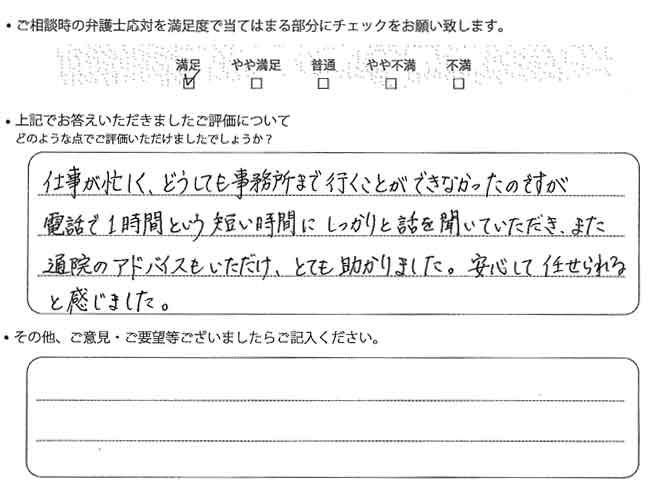 ・ご相談時の弁護士応対を満足度で当てはまる部分にチェックをお願い致します。
満足 やや満足 普通 やや不満 不満
☑ □ □ □ □
・上記でお答えいただきましたご評価について
どのような点でご評価いただけましたでしょうか？
仕事が忙しく、どうしても事務所まで行くことができなかったのですが
電話で1時間という短い時間にしっかりと話を聞いていただき、また
通院のアドバイスもいただけ、とても助かりました。安心して任せられる
と感じました。
・その他、ご意見・ご要望等ございましたらご記入ください。